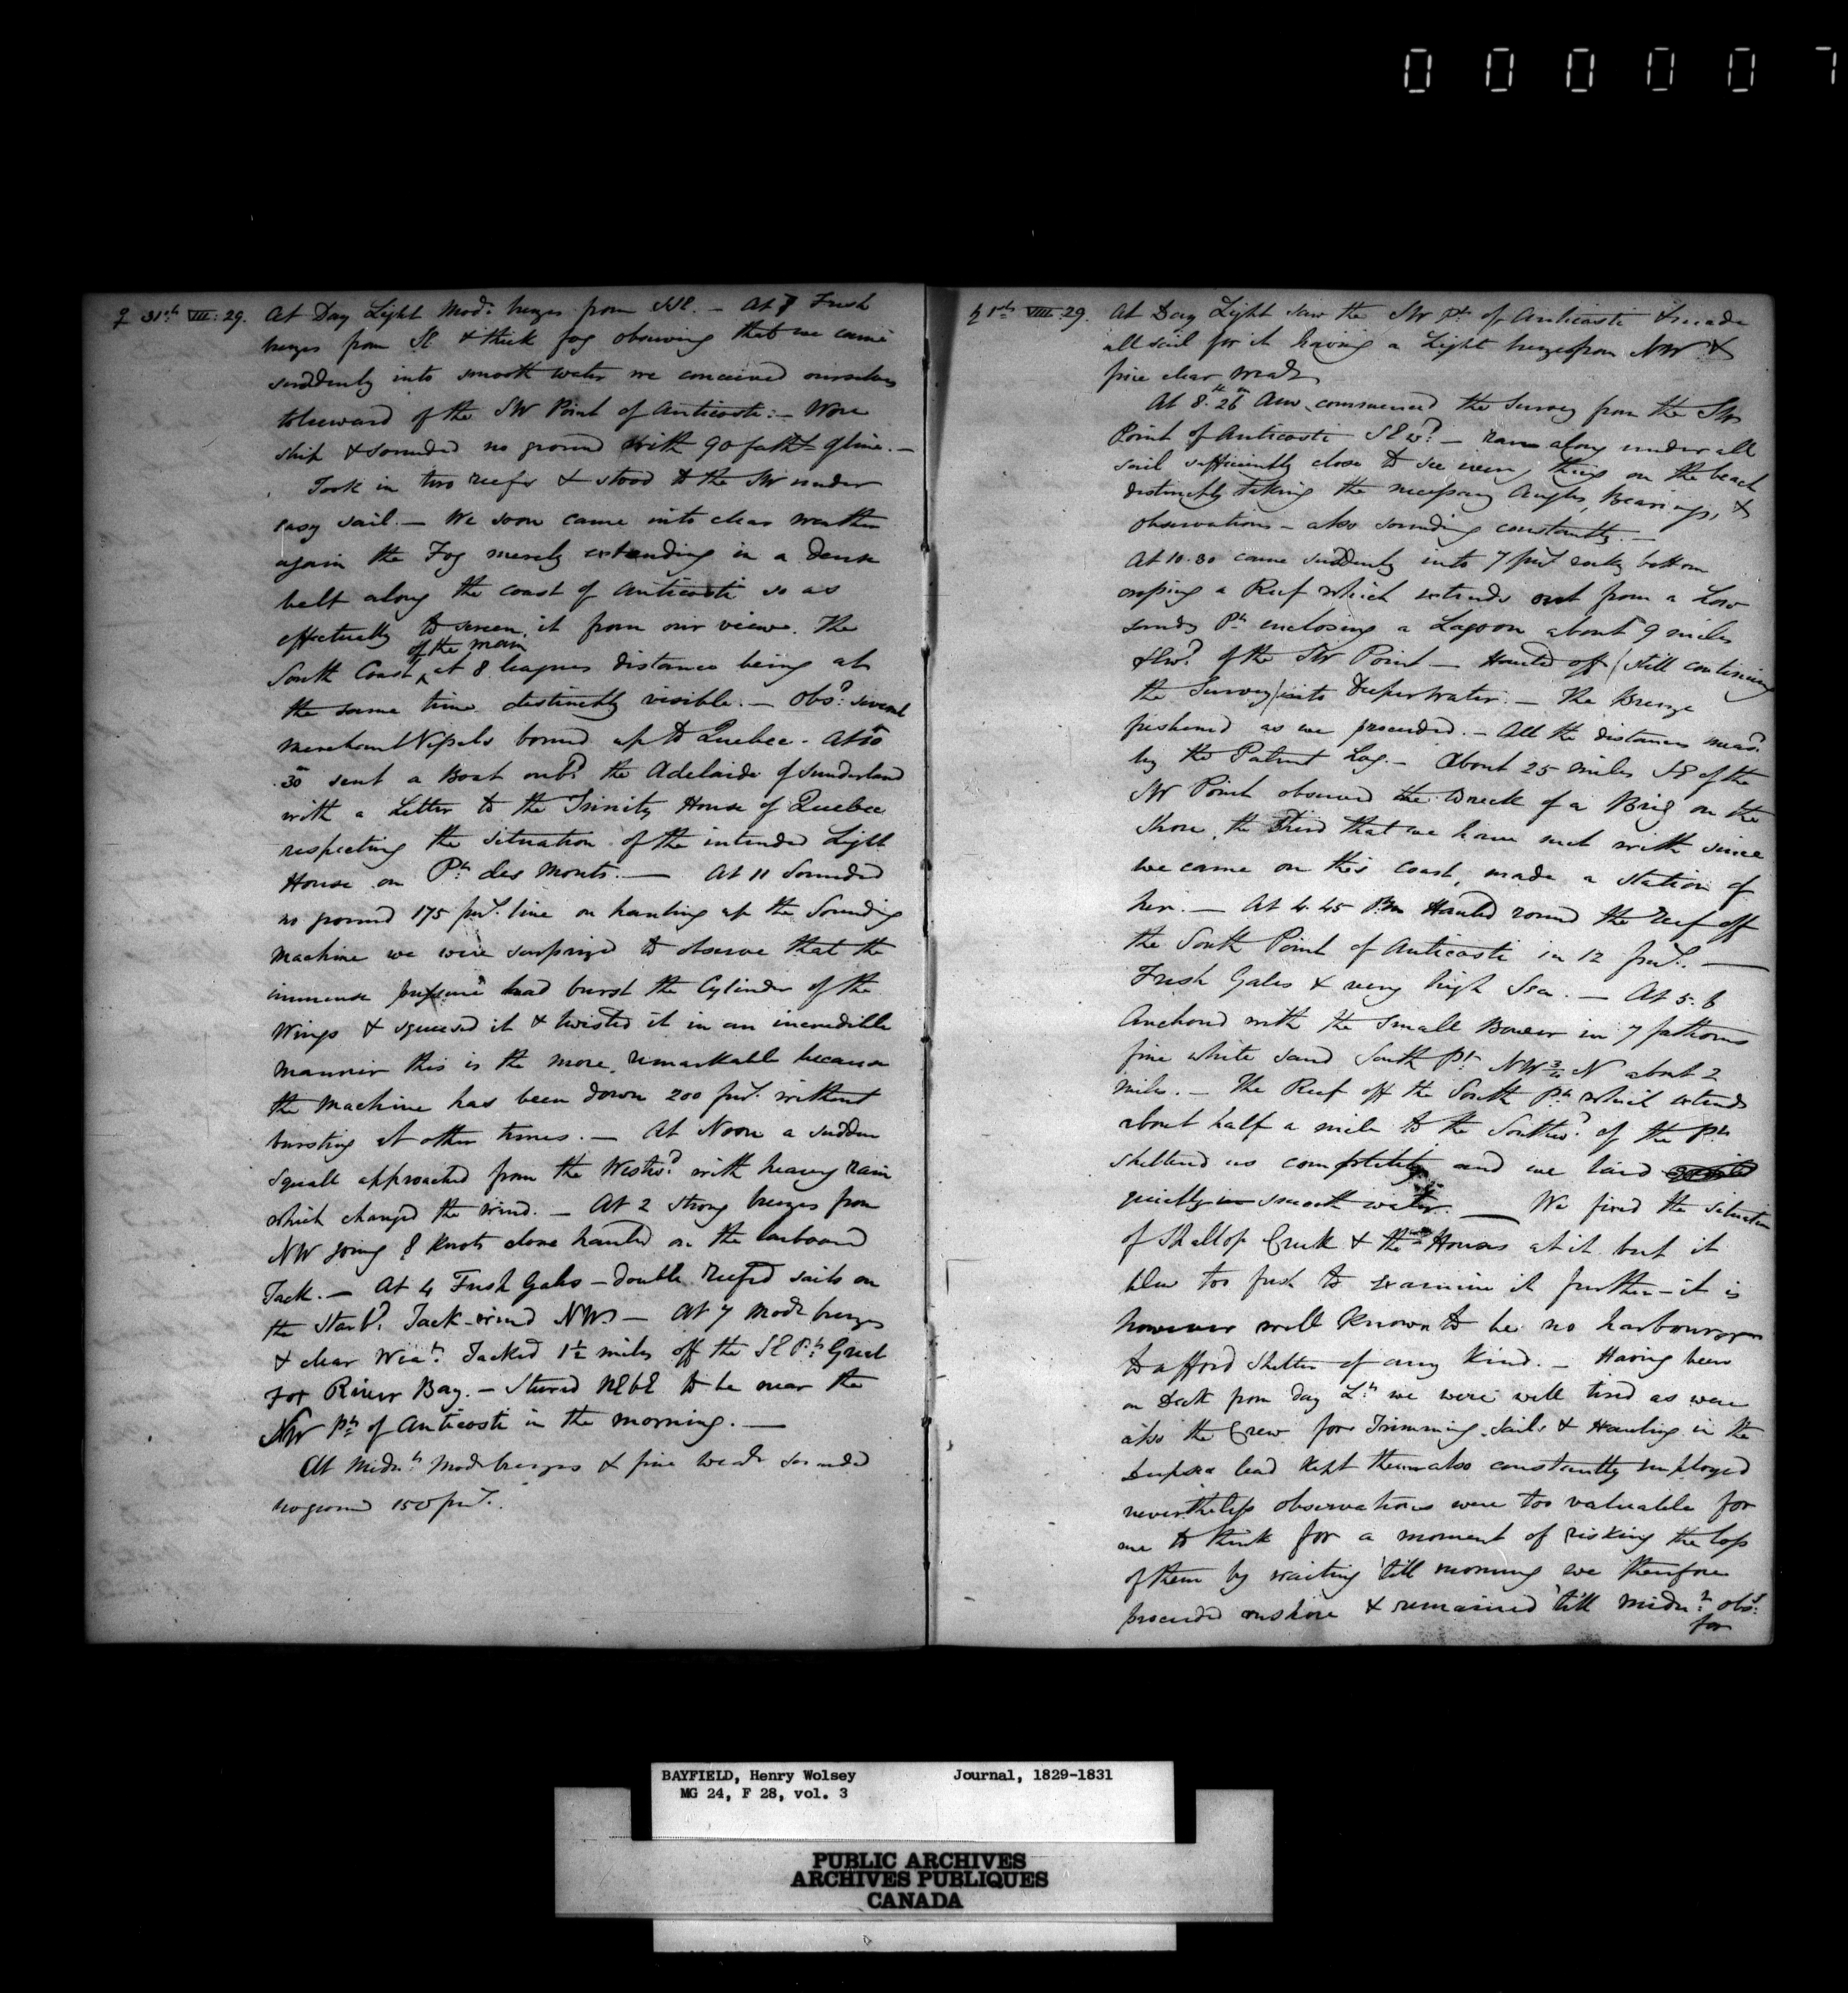 000007
♀ 31st VII: 29. At Day Light Modr. breezes from SSE. - At 7 Fresh
breezes from SE & thick fog observing that we came
suddenly into smooth water we conceived ourselves
to leeward of the SW Point of Anticosti: - Wore
ship & sounded no ground with 90 faths. of line. -
Took in two reefs & stood to the SW under
easy sail. - We soon came into clear weather
again the Fog merely extending in a dense
belt along the coast of Anticosti so as
effectually to screen it from our view. The
of the main
South Coast ^ at 8 leagues distance being at
the same time distinctly visible. - Obsd. several
merchant Vessels bound up to Quebec - At 10
.30 sent a Boat onbd. the Adelaide of Sunderland
with a Letter to the Trinity House of Quebec
respecting the situation of the intended Light
House on Pt. des Monts. - At 11 Sounded
no ground 175 fms. line on hauling up the Sounding
Machine we were surprized to observe that the
immense pressure had burst the Cylinder of the
Wings & squeesed it & twisted it in an incredible
manner this is the more remarkable because
the machine has been down 200 fms. without
bursting at other times. - At Noon a sudden
Squall approached from the Westwd. with heavy rain
which changed the wind. - At 2 strong breezes from
NW going 8 Knots close hauled on the larboard
Tack. - At 4 Fresh Gales - double reefed sails on
the Starbd. Tack - wind NW. - At 7 Modr breezes
& clear Wear. Tacked 1½ miles off the SE Pt. Great
Fox River Bay. - Steered NEbE to be near the
SW Pt. of Anticosti in the morning. -
At Midnt. Modr breezes & fine Wear sounded
no ground 150 fms.
♄ 1st VIII. 29. At Day Light saw the SW Pt. of Anticosti & made
all sail for it having a Light breeze from NW &
fine clear wear
At 8.h 26m AM. commenced the Survey from the SW
Point of Anticosti SEwd. - ran along under all
sail sufficiently close to see every thing on the beach
distinctly taking the necessary Angles, Bearings, &
observations - also sounding constantly. -
At 10.30 came suddenly into 7 fms rocky bottom
crossing a Reef which extends out from a Low
sandy Pt. enclosing a Lagoon about 9 miles
SEwd. of the SW Point - Hauled off (still continuing
the Survey) into Deeper Water. - The Breeze
freshened as we proceeded. - All the distances mead.
by the Patent Log. - About 25 miles SE of the
SW Point observed the wreck of a Brig on the
Shore, the third that we have met with since
we came on this coast, made a station of
her. - At 4.45 PM Hauled round the reef off
the South Point of Anticosti in 12 fms. -
Fresh Gales & very high Sea. - At 5.6
Anchored with the Small Bower in 7 fathoms
fine white sand South Pt. NW¾N about 2
miles. - The Reef off the South Pt. which extends
about half a mile to the Southwd. of the Pt.
sheltered us completely and we laid
quietly in smooth water. - We fixed the situation
of Shallop Creek & the Houses at it but it
blew too fresh to examine it further - it is
however well known to be no harbour
to afford shelter of any kind. - Having been
on Deck from day Lt. we were well tired as were
also the Crew for Trimming Sails & Hauling in the
Deepsea lead kept them also constantly employed
nevertheless observations were too valuable for
me to think for a moment of risking the loss
of them by waiting 'till morning we therefore
proceeded onshore & remained 'till midnt. obsg.
for
BAYFIELD, Henry Wolsey Journal, 1829-1831
MG 24, F 28, vol. 3
PUBLIC ARCHIVES
ARCHIVES PUBLIQUES
CANADA